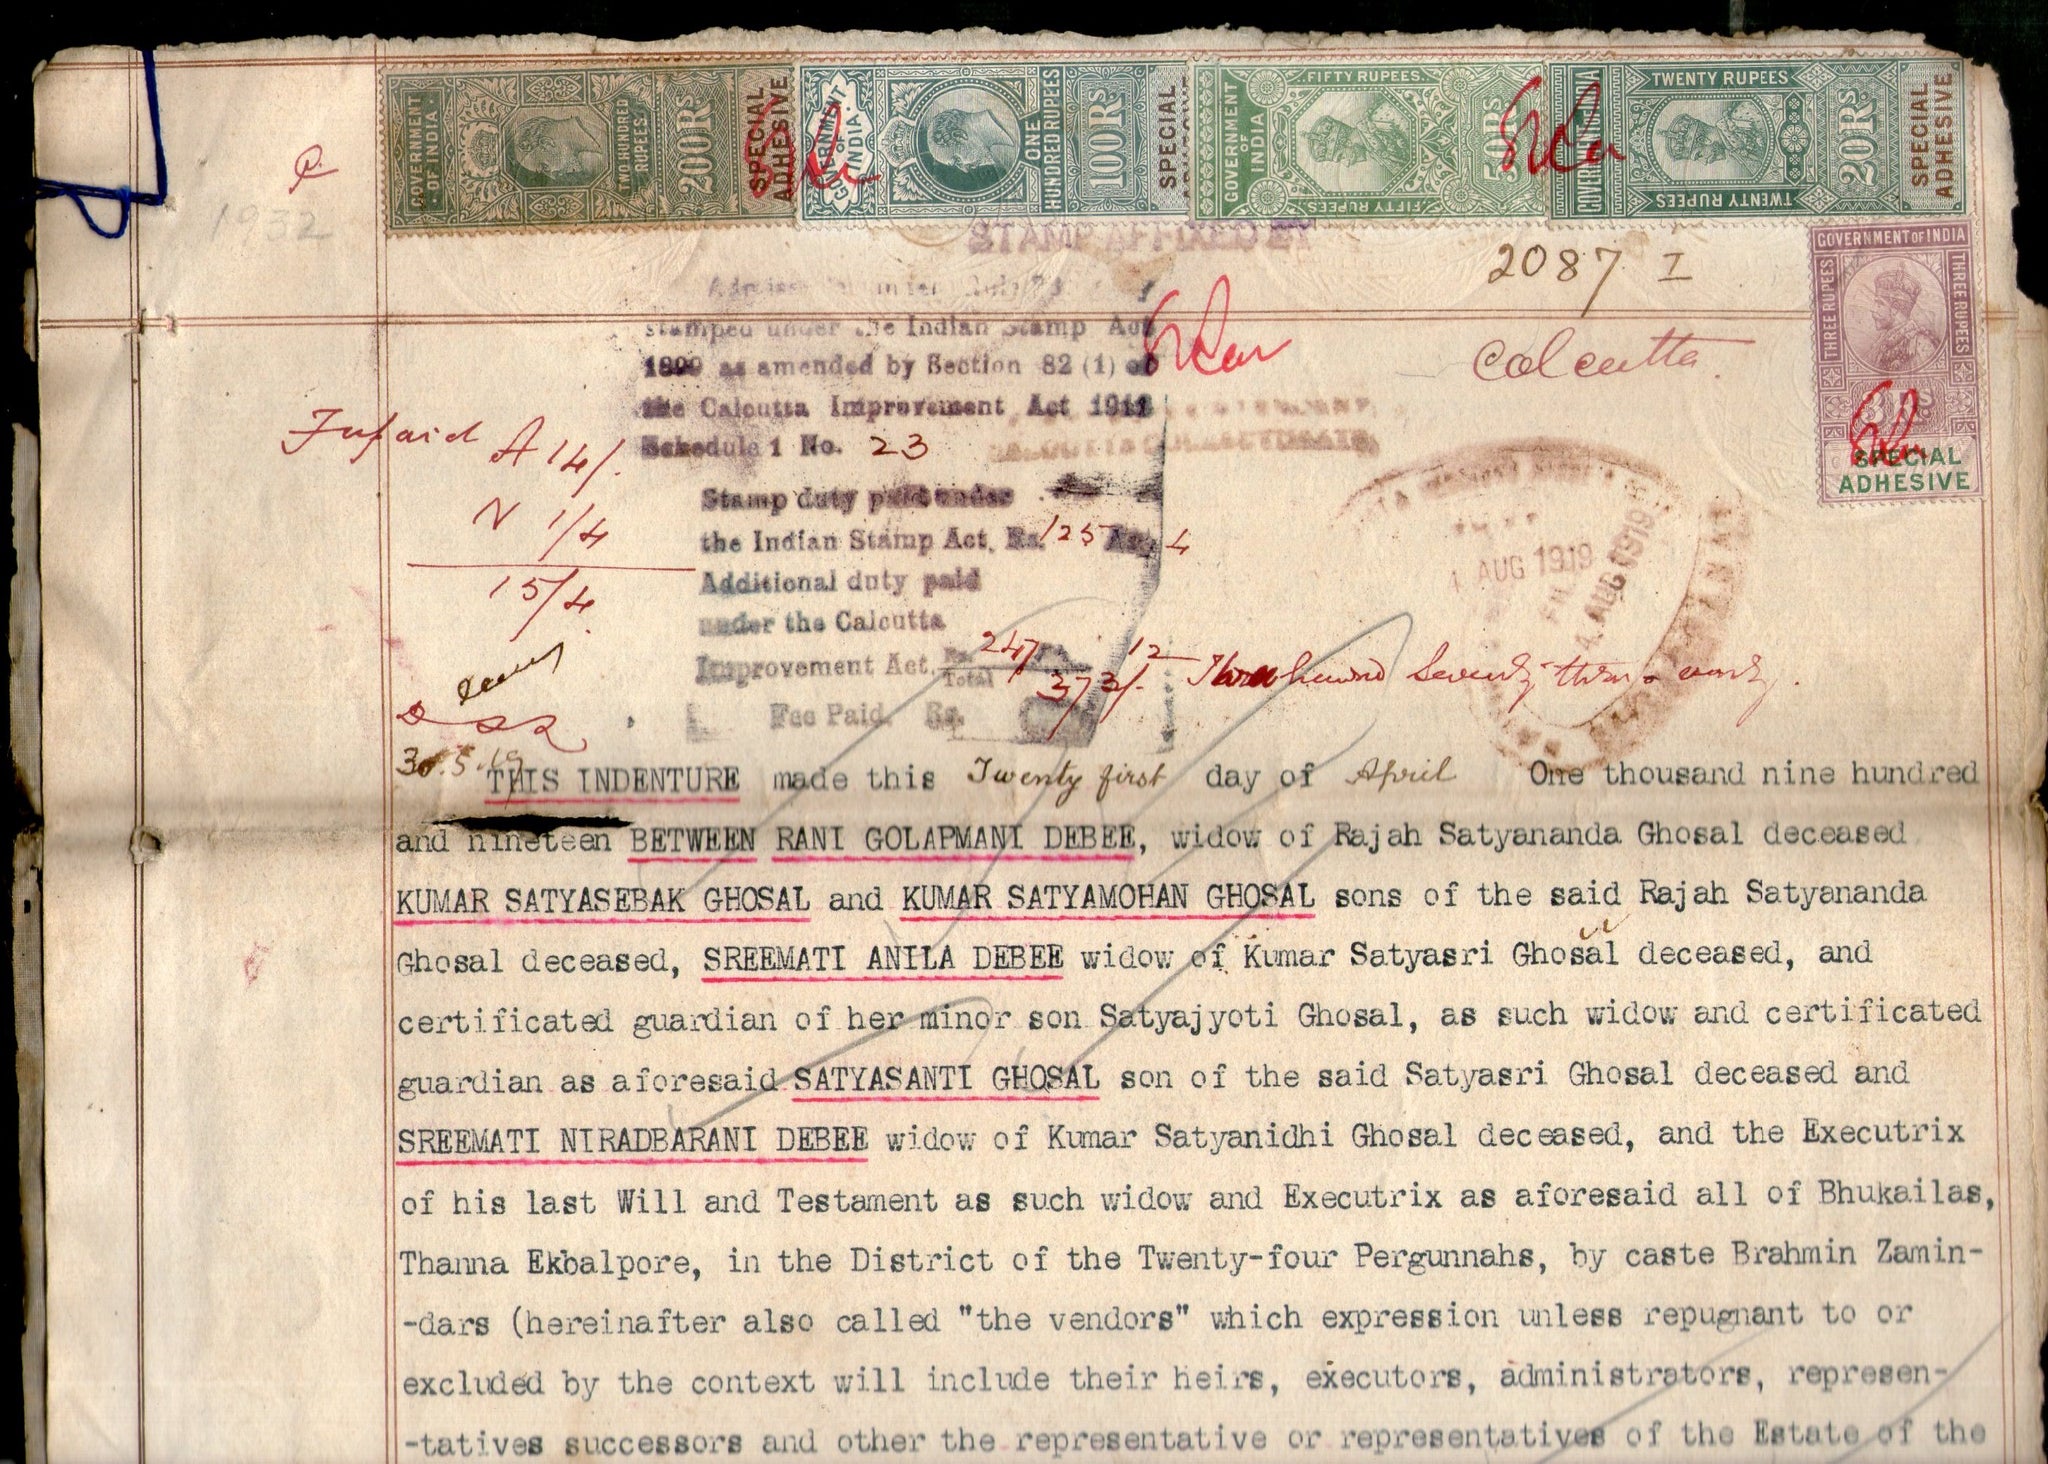 GOVERNMENT OF INDIA TWO HUNDRED RUPEES 200 Rs SPECIAL ADHESIVE
GOVERNMENT OF INDIA ONE HUNDRED RUPEES 100 Rs SPECIAL
GOVERNMENT OF INDIA FIFTY RUPEES. FIFTY RUPEES 50 Rs
GOVERNMENT INDIA TWENTY RUPEES TWENTY RUPEES 20 Rs SPECIAL ADHESIVE
GOVERNMENT OF INDIA THREE RUPEES THREE RUPEES 3 Rs SPECIAL ADHESIVE
1932
STAMP AFFIXED BY
2087 I
Calcutta.
stamped under the Indian Stamp Act
1899 as amended by Section 82 (1) of
the Calcutta Improvement Act 1911
Schedule 1 No. 23
A 14/.
N 1/4
15/4
Stamp duty paid under
the Indian Stamp Act, Rs. 125 As, 4
Additional duty paid
under the Calcutta
Improvement Act. Rs. 247/ 12
Total 373/- Three hundred Seventy three only.
Fee Paid. Rs.
1 AUG 1919
4 AUG 1919
30.5.19
THIS INDENTURE made this Twenty first day of April One thousand nine hundred
and nineteen BETWEEN RANI GOLAPMANI DEBEE, widow of Rajah Satyananda Ghosal deceased
KUMAR SATYASEBAK GHOSAL and KUMAR SATYAMOHAN GHOSAL sons of the said Rajah Satyananda
Ghosal deceased, SREEMATI ANILA DEBEE widow of Kumar Satyasri Ghosal deceased, and
certificated guardian of her minor son Satyajyoti Ghosal, as such widow and certificated
guardian as aforesaid SATYASANTI GHOSAL son of the said Satyasri Ghosal deceased and
SREEMATI NIRADBARANI DEBEE widow of Kumar Satyanidhi Ghosal deceased, and the Executrix
of his last Will and Testament as such widow and Executrix as aforesaid all of Bhukailas,
Thanna Ekbalpore, in the District of the Twenty-four Pergunnahs, by caste Brahmin Zamin-
-dars (hereinafter also called "the vendors" which expression unless repugnant to or
excluded by the context will include their heirs, executors, administrators, represen-
-tatives successors and other the representative or representatives of the Estate of the